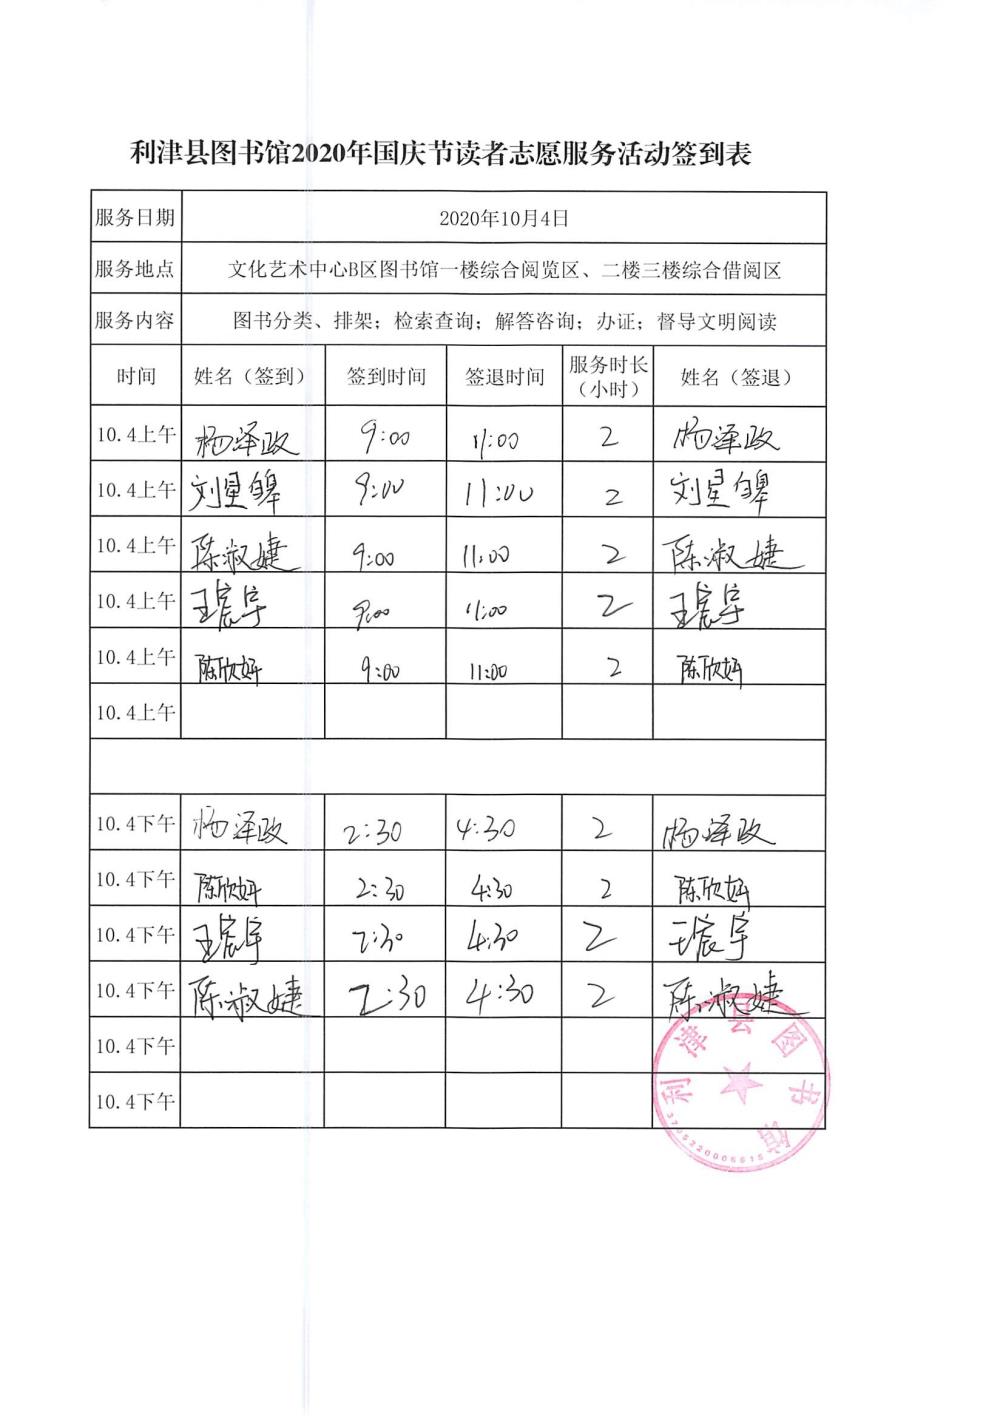 利津县图书馆2020年国庆节读者志愿服务活动签到表
服务日期 2020年10月4日
服务地点 文化艺术中心B区图书馆一楼综合阅览区、二楼三楼综合借阅区
服务内容 图书分类、排架；检索查询；解答咨询；办证；督导文明阅读
时间 姓名（签到） 签到时间 签退时间 服务时长（小时） 姓名（签退）
10.4上午 杨泽政 9:00 11:00 2 杨泽政
10.4上午 刘星皞 9:00 11:00 2 刘星皞
10.4上午 陈淑婕 9:00 11:00 2 陈淑婕
10.4上午 王宸宇 9:00 11:00 2 王宸宇
10.4上午 陈欣妍 9:00 11:00 2 陈欣妍
10.4上午
10.4下午 杨泽政 2:30 4:30 2 杨泽政
10.4下午 陈欣妍 2:30 4:30 2 陈欣妍
10.4下午 王宸宇 2:30 4:30 2 王宸宇
10.4下午 陈淑婕 2:30 4:30 2 陈淑婕
10.4下午
10.4下午
利津县图书馆